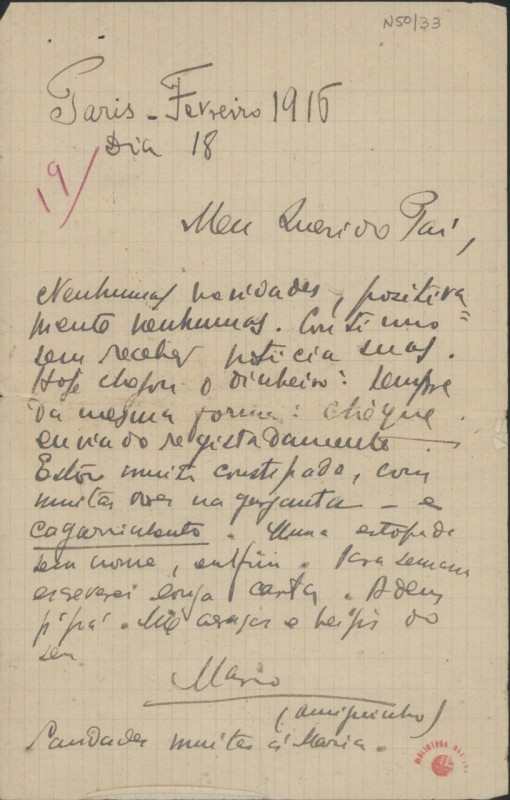 N50/33
Paris - Fevreiro 1916
Dia 18
19/
Meu Querido Pai,
Nenhumas novidades, positiva
mente nenhumas. Continuo
sem receber noticia suas.
Hoje chegou o dinheiro: sempre
da mesma forma: chèque
enviado registadamente.
Estou muito constipado, com
muitas dores na garganta - e
cagarrinhento. Uma estopada
sem nome, enfim. Para semana
escreverei longa carta. Adeus
p'pá. Mil abraços e beijos do
seu
Mario
(amiguinho)
Saudades muitas á Maria.